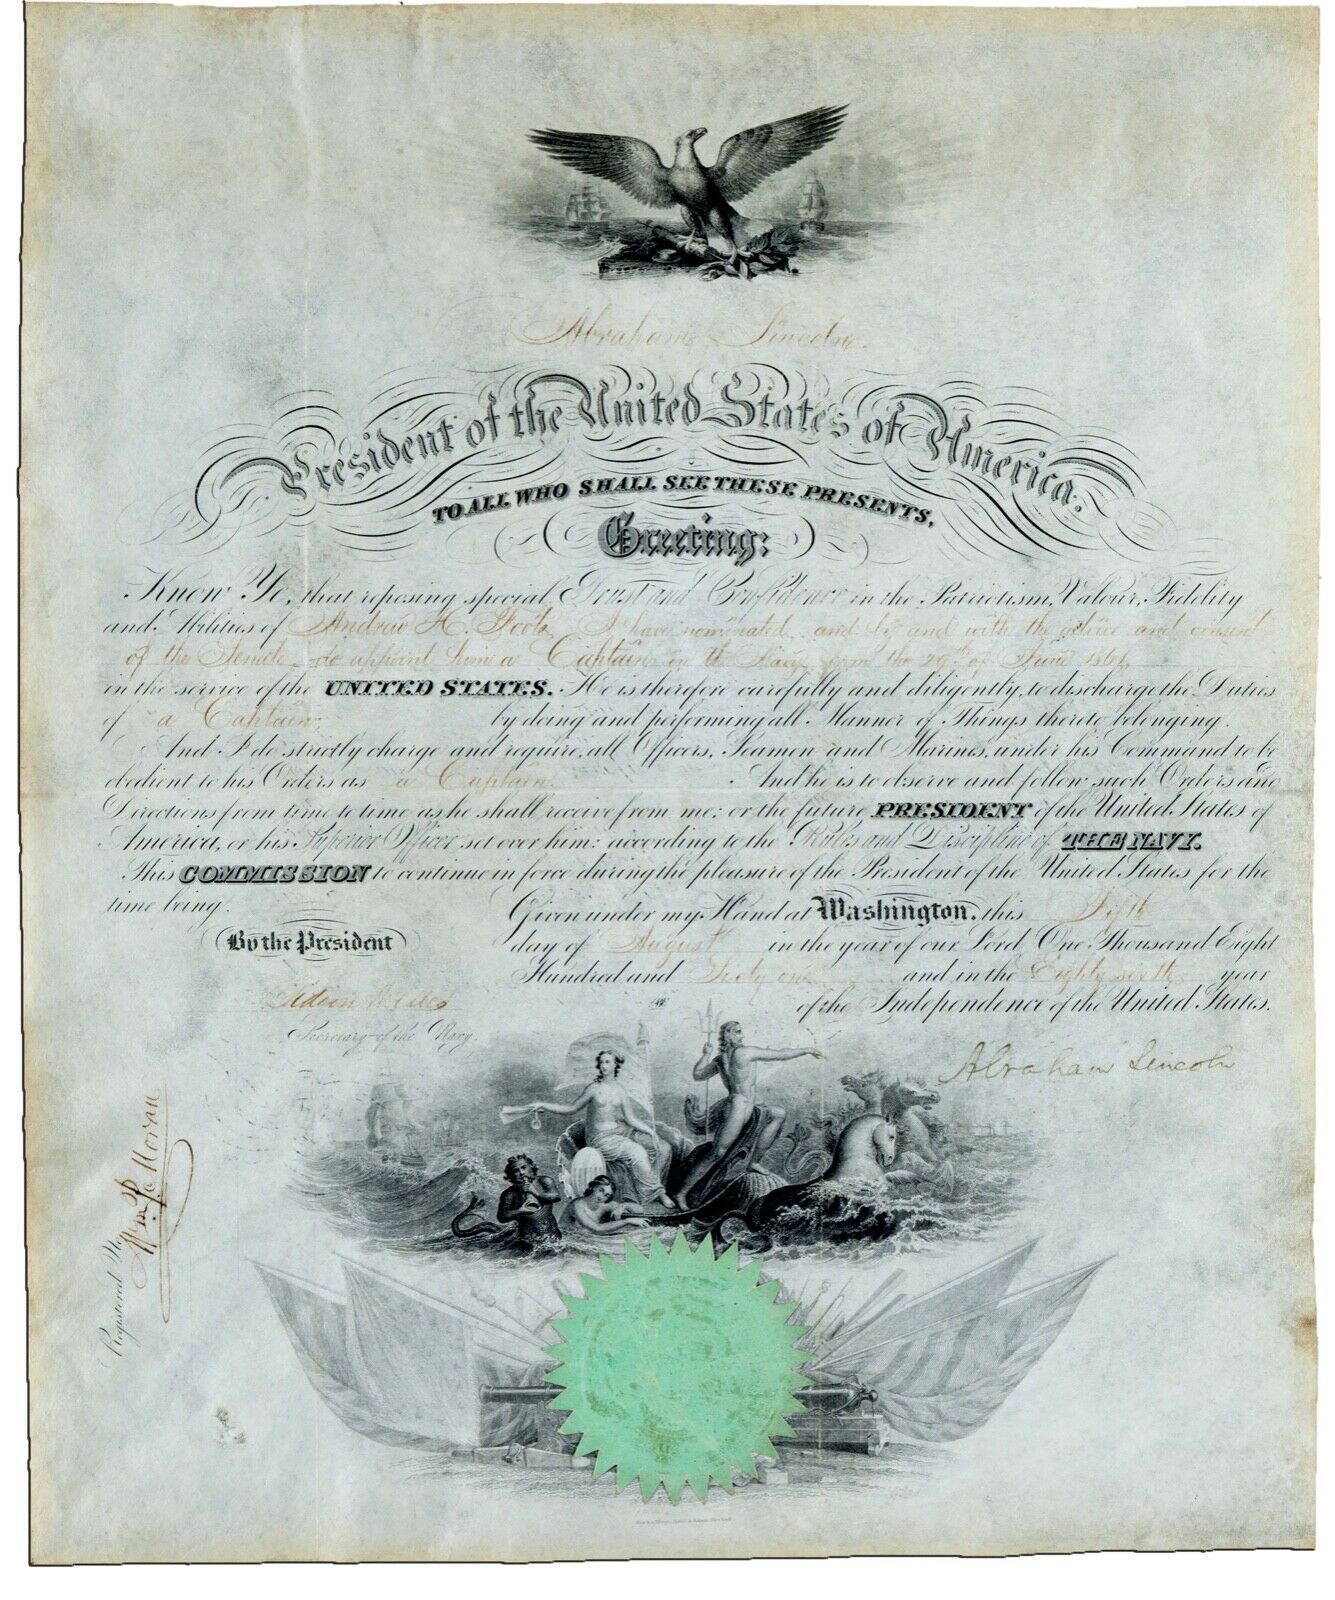 Abraham Lincoln
President of the United States of America.
TO ALL WHO SHALL SEE THESE PRESENTS,
Greeting:
Know Ye, that reposing special Trust and Confidence in the Patriotism, Valour, Fidelity
and Abilities of Andrew H. Foote I have nominated and by and with the advice and consent
of the Senate do appoint him a Captain in the Navy from the 29th of June 1861
in the service of the UNITED STATES. He is therefore carefully and diligently, to discharge the Duties
of a Captain by doing and performing all Manner of Things thereto belonging.
And I do strictly charge and require, all Officers, Seamen and Marines, under his Command to be
obedient to his Orders as a Captain. And he is to observe and follow such Orders and
Directions from time to time as he shall receive from me; or the future PRESIDENT of the United States of
America, or his Superior Officer set over him; according to the Rules and Discipline of THE NAVY.
This COMMISSION to continue in force during the pleasure of the President of the United States for the
time being.
Given under my Hand at Washington, this Fifth
By the President
day of August in the year of our Lord, One Thousand Eight
Hundred and Sixty one and in the Eighty sixth year
Gideon Welles
of the Independence of the United States.
Secretary of the Navy.
Abraham Lincoln
Registered
Moran